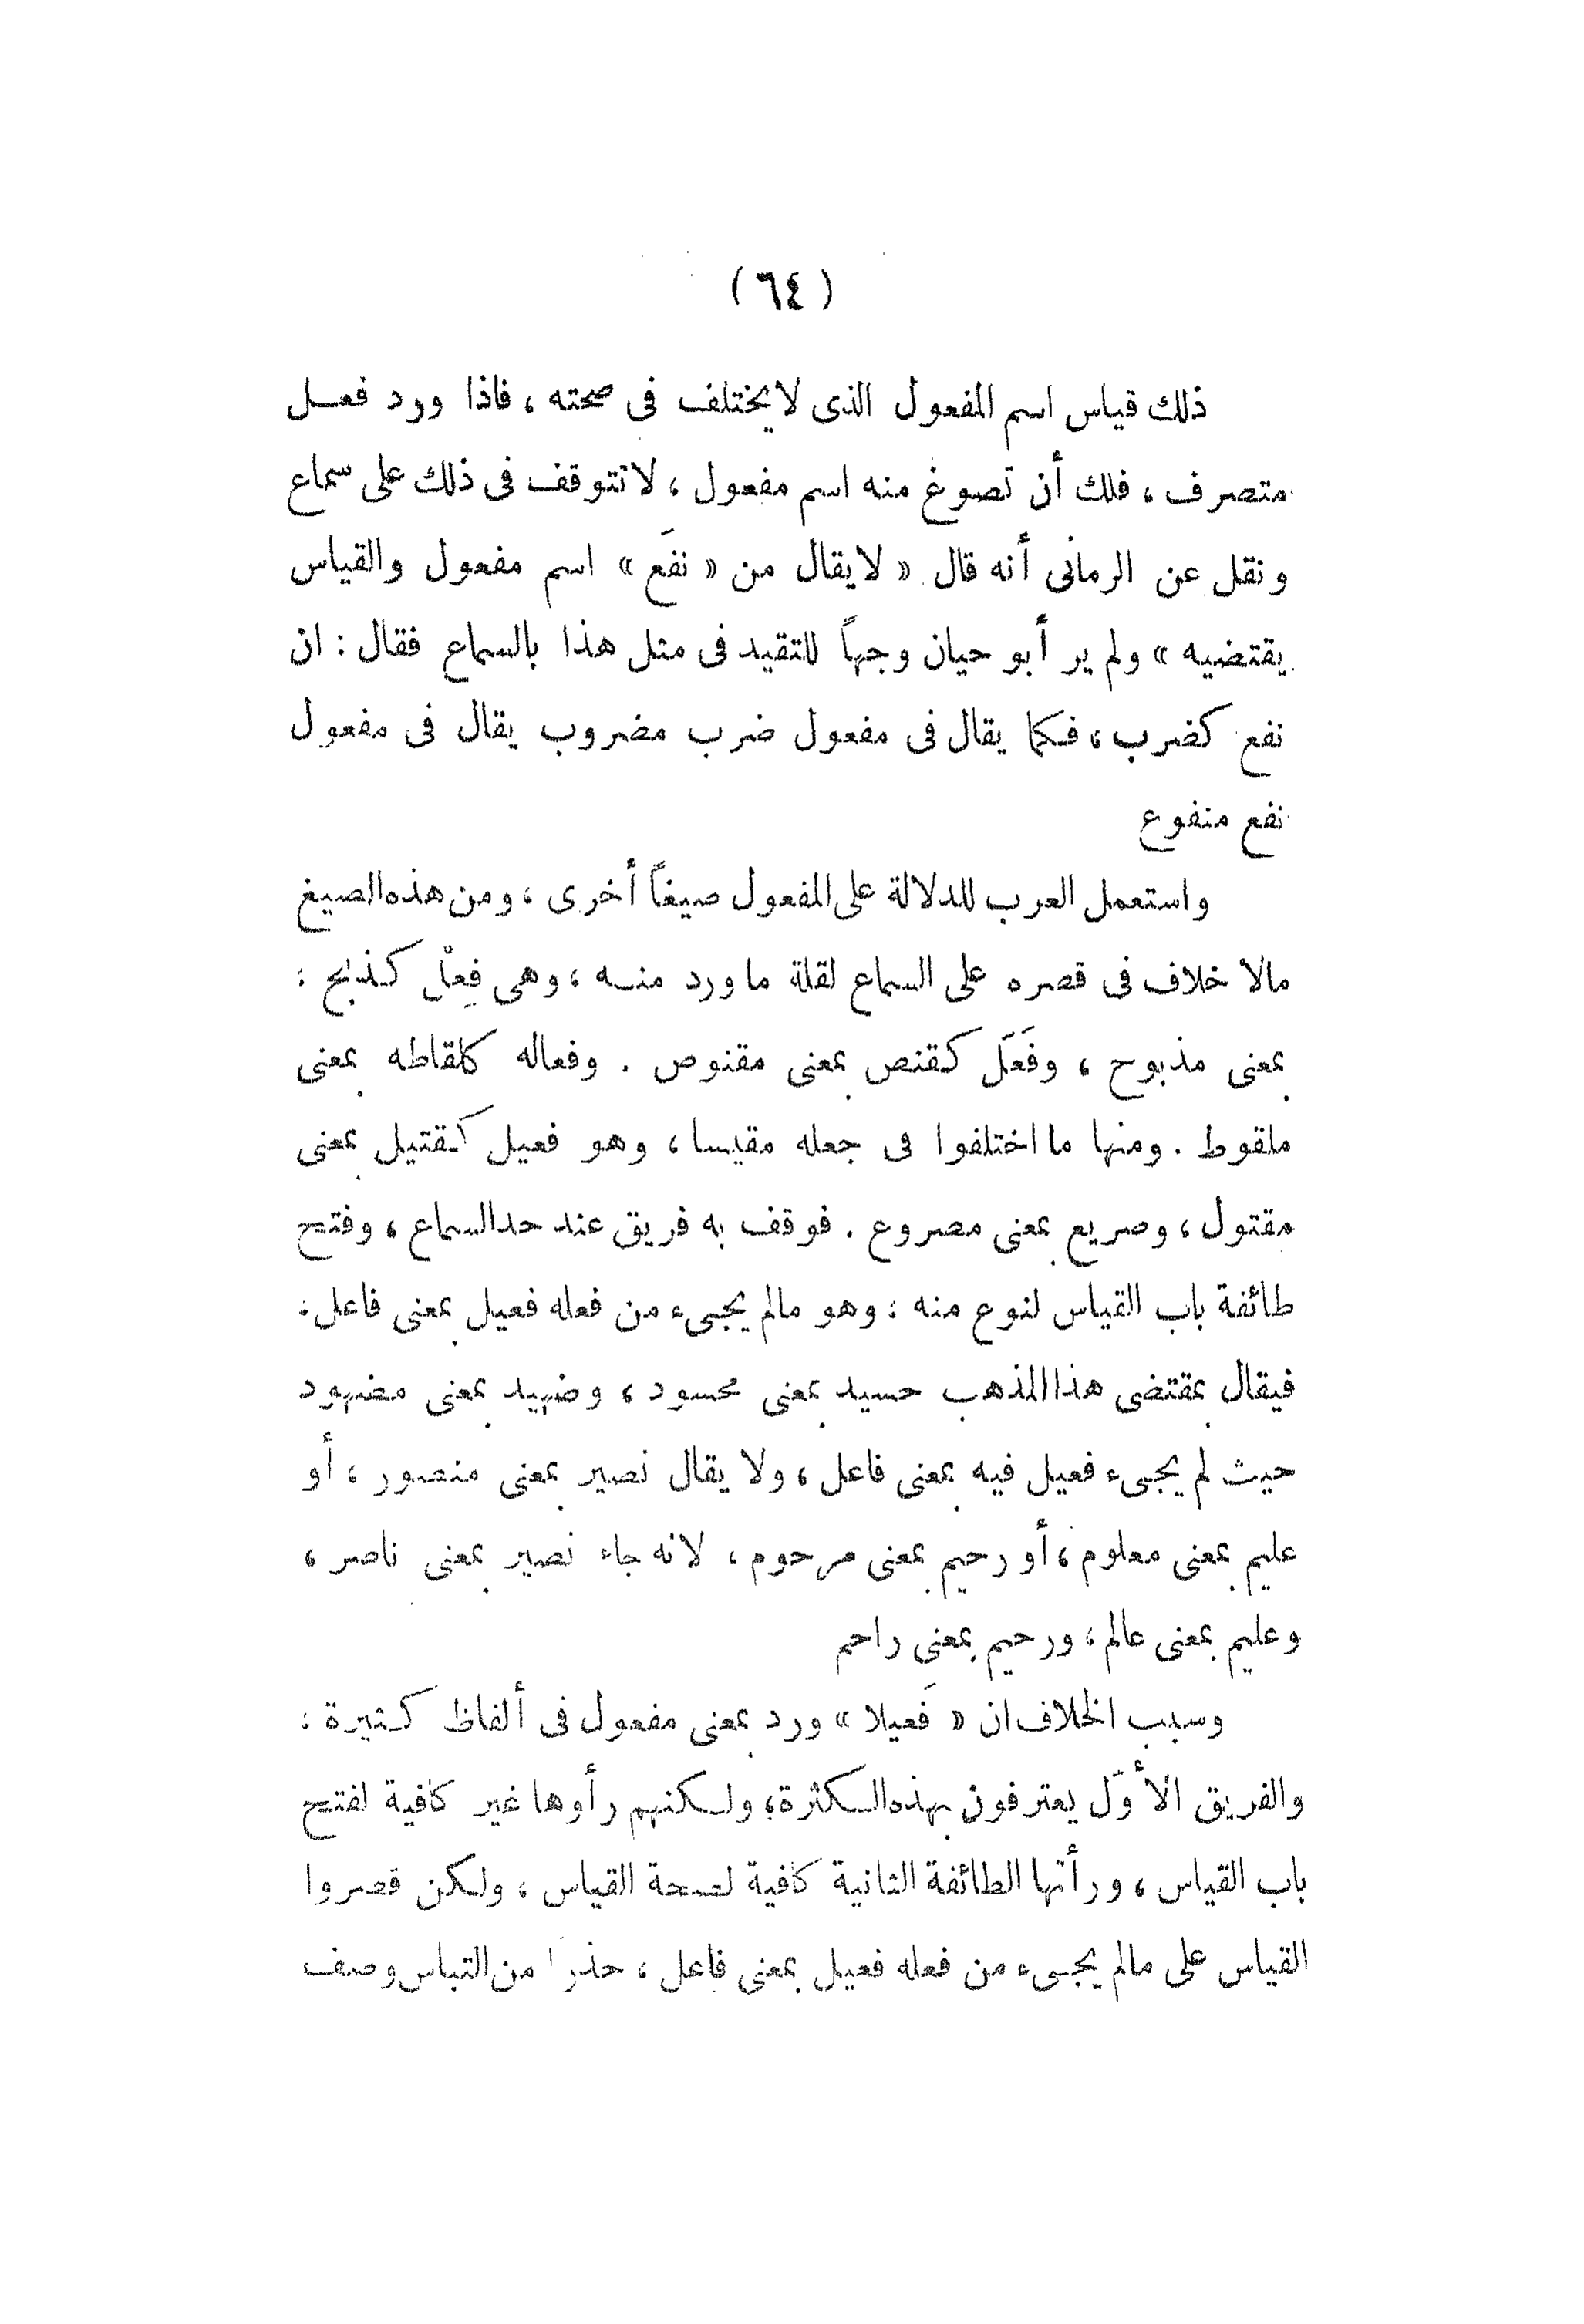 ( ٦٤ )
ذلك قياس اسم المفعول الذى لا يختلف فى صحته ، فاذا ورد فعل
متصرف ، فلك أن تصوغ منه اسم مفعول ، لا تتوقف فى ذلك على سماع
ونقل عن الرمانى أنه قال « لا يقال من « نفَع » اسم مفعول والقياس
يقتضيه » ولم ير أبو حيان وجهاً للتقيد فى مثل هذا بالسماع فقال : ان
نفع كضرب ، فكما يقال فى مفعول ضرب مضروب يقال فى مفعول
نفع منفوع
واستعمل العرب للدلالة على المفعول صيغاً أخرى ، ومن هذه الصيغ
مالا خلاف فى قصره على السماع لقلة ما ورد منه ، وهى فِعْل كذبح :
بمعنى مذبوح ، وفَعَل كقنص بمعنى مقنوص . وفعاله كلقاطه بمعنى
ملقوط . ومنها ما اختلفوا فى جعله مقيسا ، وهو فعيل كقتيل بمعنى
مقتول ، وصريع بمعنى مصروع . فوقف به فريق عند حد السماع ، وفتح
طائفة باب القياس لنوع منه : وهو مالم يجىء من فعله فعيل بمعنى فاعل :
فيقال بمقتضى هذا المذهب حسيد بمعنى محسود ، وضهيد بمعنى مضهود
حيث لم يجىء فعيل فيه بمعنى فاعل ، ولا يقال نصير بمعنى منصور ، أو
عليم بمعنى معلوم ، أو رحيم بمعنى مرحوم ، لانه جاء نصير بمعنى ناصر ،
وعليم بمعنى عالم ، ورحيم بمعنى راحم
وسبب الخلاف ان « فَعيلا » ورد بمعنى مفعول فى ألفاظ كثيرة :
والفريق الأوّل يعترفون بهذه الكثرة ، ولكنهم رأوها غير كافية لفتح
باب القياس ، ورأتها الطائفة الثانية كافية لصحة القياس ، ولكن قصروا
القياس على مالم يجىء من فعله فعيل بمعنى فاعل ، حذرا من التباس وصف